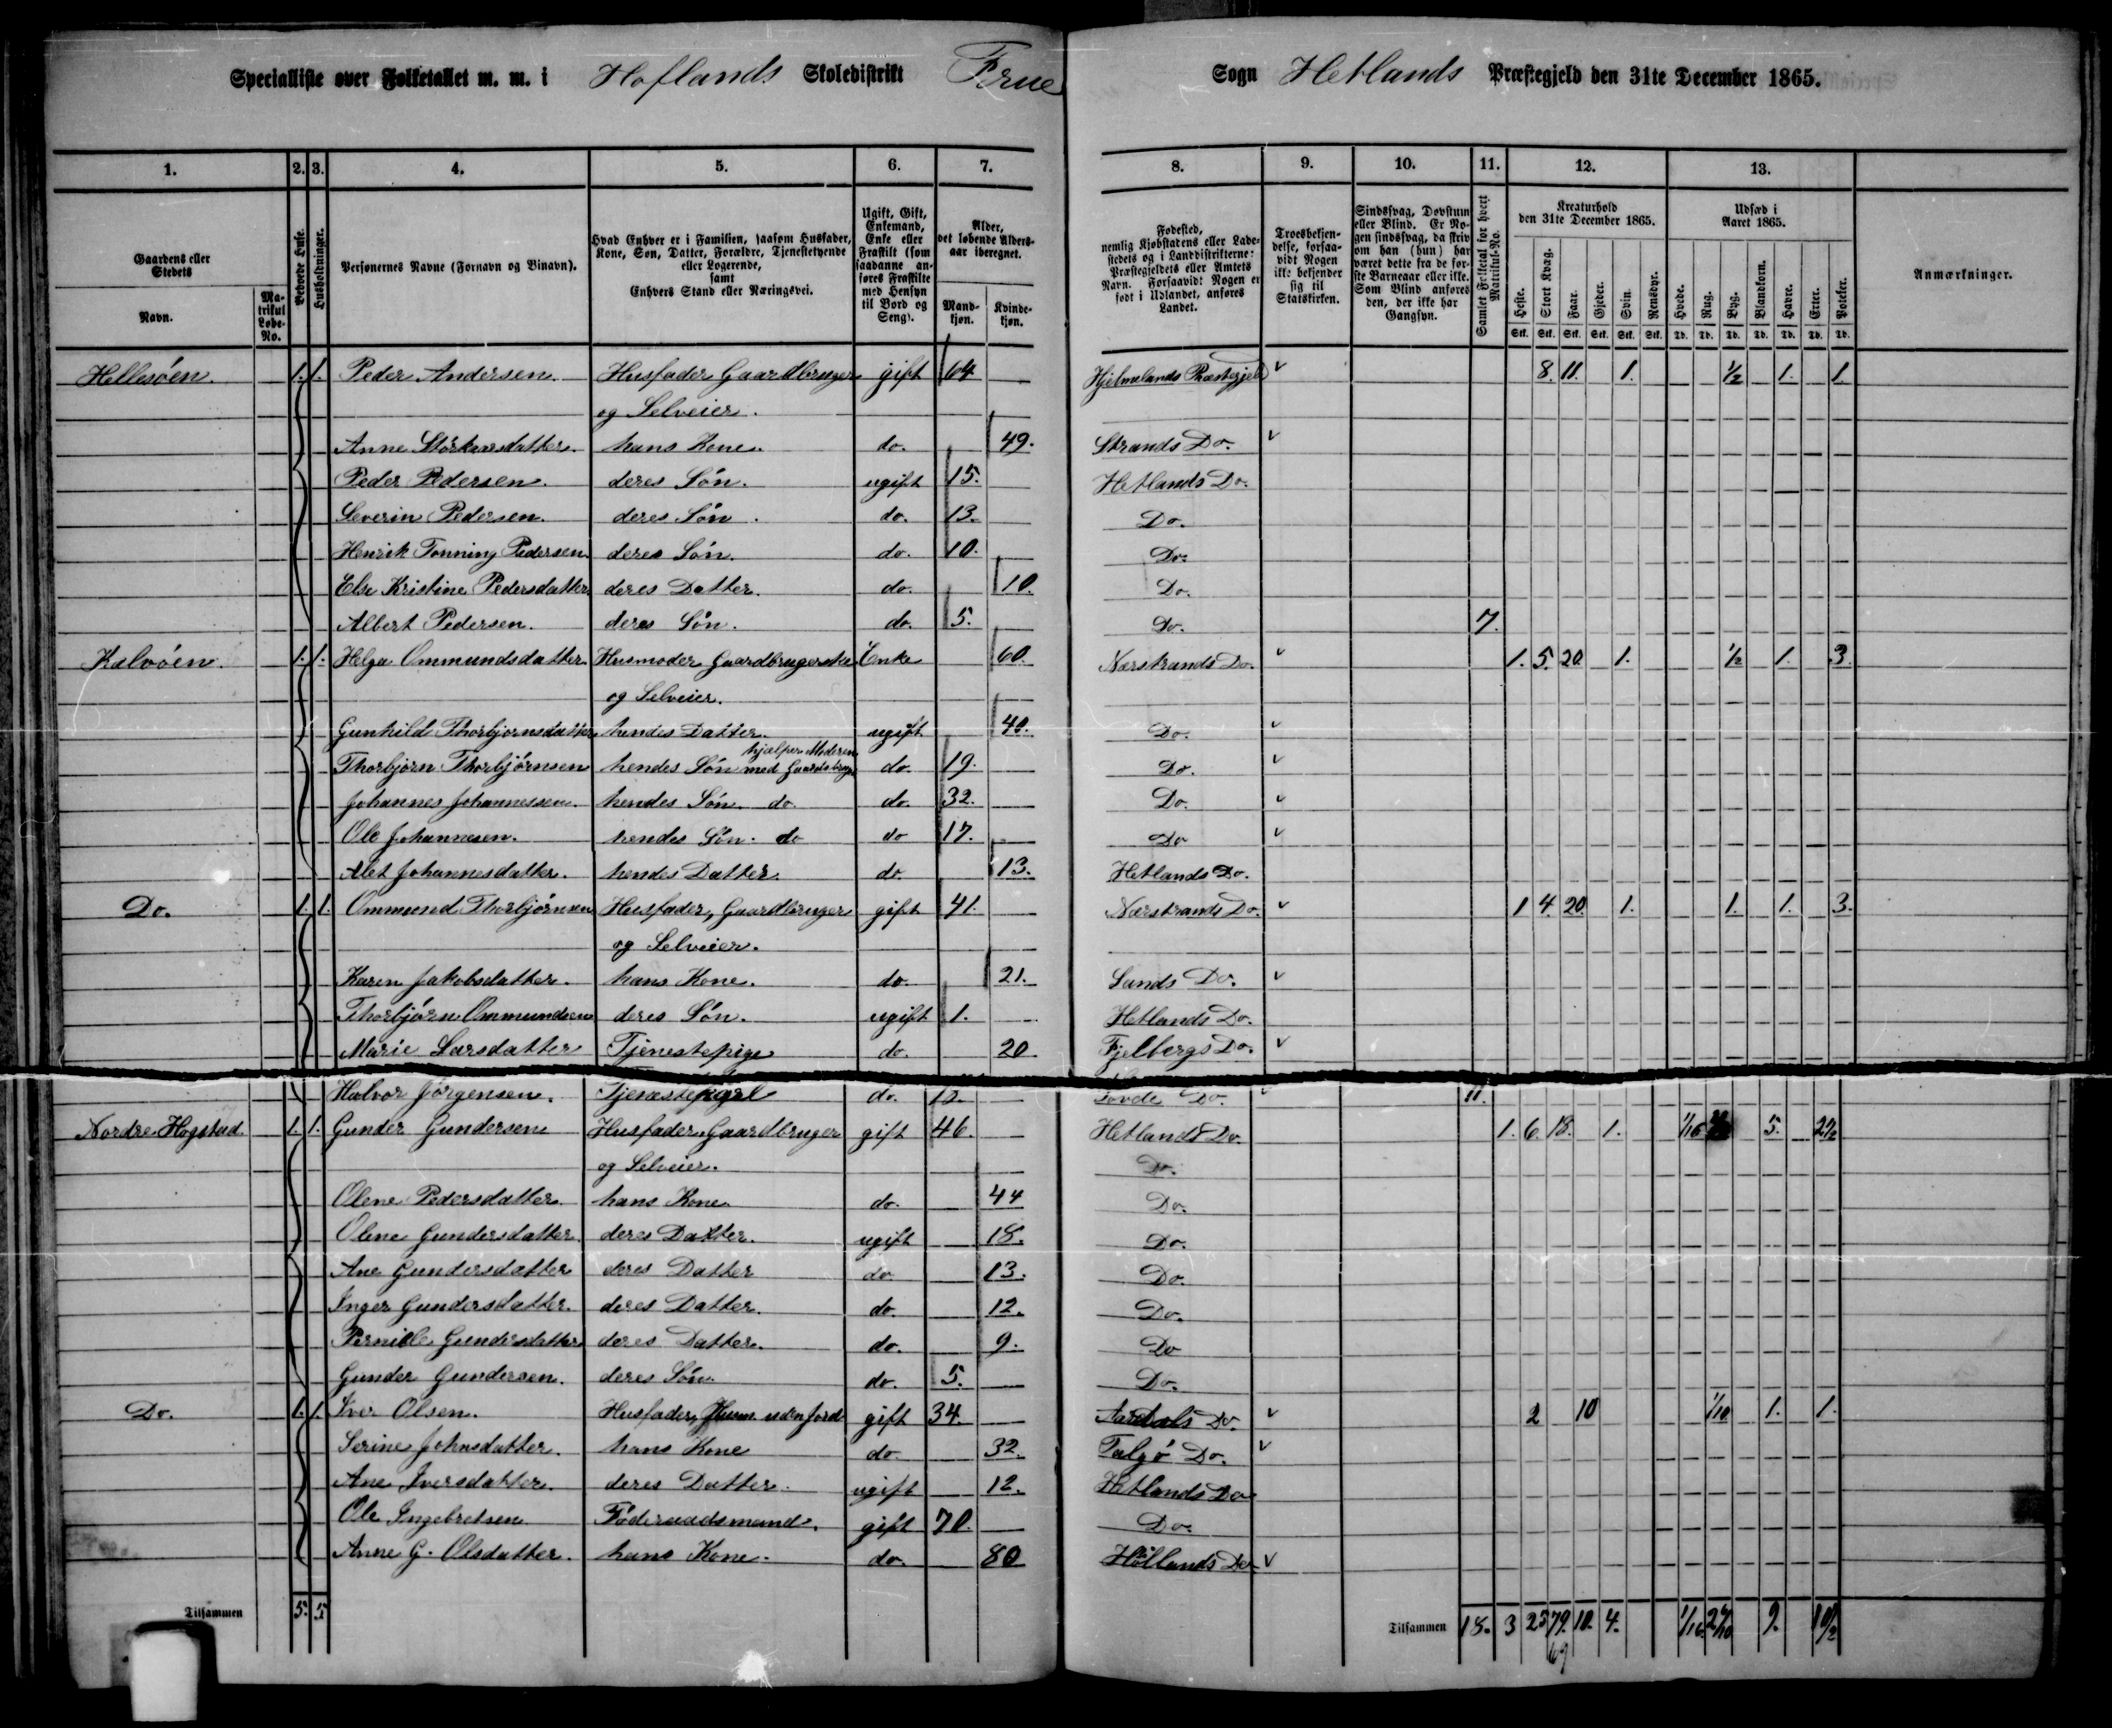 Specialliste over Folketallet m. m. i Hoflands Skoledistrikt Frue Sogn Hetlands Præstegjeld den 31te December 1865.
1. 2. 3. 4. 5. 6. 7. 8. 9. 10. 11. 12. 13.
Gaardens eller Stedets
Navn.
Matrikul Løbe-No.
Beboede Huse.
Husholdninger.
Personernes Navne (Fornavn og Binavn).
Hvad Enhver er i Familien, saasom Husfader, Kone, Søn, Datter, Forældre, Tjenestetyende eller Logerende, samt Enhvers Stand eller Næringsvei.
Ugift, Gift, Enkemand, Enke eller Fraskilt (som saadanne anføres Fraskilte med Hensyn til Bord og Seng).
Alder, det løbende Alders-aar iberegnet.
Mandkjøn. Kvindekjøn.
Fødested, nemlig Kjøbstadens eller Ladestedets og i Landdistrikterne: Præstegjeldets eller Amtets Navn. Forsaavidt Nogen er født i Udlandet, anføres Landet.
Troesbekjendelse, forsaavidt Nogen ikke bekjender sig til Statskirken.
Sindssvag, Døvstum eller Blind. Er Nogen sindssvag, da skriv om han (hun) har været dette fra de første Barneaar eller ikke. Som Blind anføres den, der ikke har Gangsyn.
Samlet Folketal for hvert Matrikul-No.
Kreaturhold den 31te December 1865.
Heste. Stort Kvæg. Faar. Gjeder. Svin. Rensdyr.
Stk. Stk. Stk. Stk. Stk. Stk.
Udsæd i Aaret 1865.
Hvede. Rug. Byg. Blandkorn. Havre. Erter. Poteter.
Td. Td. Td. Td. Td. Td. Td.
Anmærkninger.
Hellesöen. 1. 1. Peder Andersen. Husfader Gaardbruger gift 64 Hjelmelands Præstegjeld v 8. 11. 1. ½ 1. 1.
og Selveier.
Anne Störkersdatter. hans Kone. do. 49. Strands Do. v
Peder Pedersen. deres Sön. ugift 15. Hetlands Do.
Severin Pedersen. deres Sön. do. 13. Do.
Henrik Tonning Pedersen deres Sön. do. 10. Do.
Else Kristine Pedersdatter deres Datter. do. 10. Do.
Albert Pedersen. deres Sön. do. 5. Do. 7.
Kalvöen. 1. 1. Helga Ommundsdatter Husmoder Gaardbrugerske Enke 60. Nærstrands Do. v 1. 5. 20. 1. ½ 1. 3.
og Selveier.
Gunhild Thorbjornsdatter hendes Datter. ugift 40. Do. v
Thorbjörn Thorbjörnsen hendes Sön hjælper Moderen med Gaardsbrug do. 19. Do. v
Johannes Johannessen. hendes Sön. do do. 32. Do. v
Ole Johannesen. hendes Sön. do do 17. Do v
Alet Johannesdatter. hendes Datter do. 13. Hetlands Do.
Do. 1. 1. Ommund Thorbjörnsen Husfader, Gaardbruger gift 41. Nærstrands Do. v 1 4. 20. 1. 1. 1. 3.
og Selveier.
Karen Jakobsdatter. hans Kone. do. 21. Sands Do. v
Thorbjörn Ommundsen deres Sön. ugift 1. Hetlands Do.
Marie Larsdatter Tjenestepige do. 20. Fjelbergs Do. v
Halvor Jörgensen. do. 12. Do. v 11.
Nordre Hogstad. 1. 1. Gunder Gundersen Husfader Gaardbruger gift 46. Hetlands Do. 1. 6. 18. 1. 1/16 5. 2½
og Selveier. Do.
Olene Pedersdatter. hans Kone do. 44 Do.
Olene Gundersdatter. deres Datter. ugift 18. Do.
Ane Gundersdatter deres Datter do. 13. Do.
Inger Gundersdatter. deres Datter. do. 12. Do.
Pernille Gundersdatter deres Datter. do. 9. Do
Gunder Gundersen. deres Sön. do. 5. Do.
Do. 1. 1. Iver Olsen. Husfader, Husm. uden Jord gift 34. Aardals Do. v 2 10 1/10 1. 1.
Serine Johnsdatter. hans Kone do. 32. Talgö Do. v
Ane Iversdatter. deres Datter. ugift 12. Hetlands Do
Ole Ingebretsen Föderaadsmand. gift 70. Do.
Anne G. Olsdatter. hans Kone. do. 80 Höllands Do v
Tilsammen 5. 5 Tilsammen 18. 3 25 79. 10. 4. 1/16 2 7/10 9. 10½
69